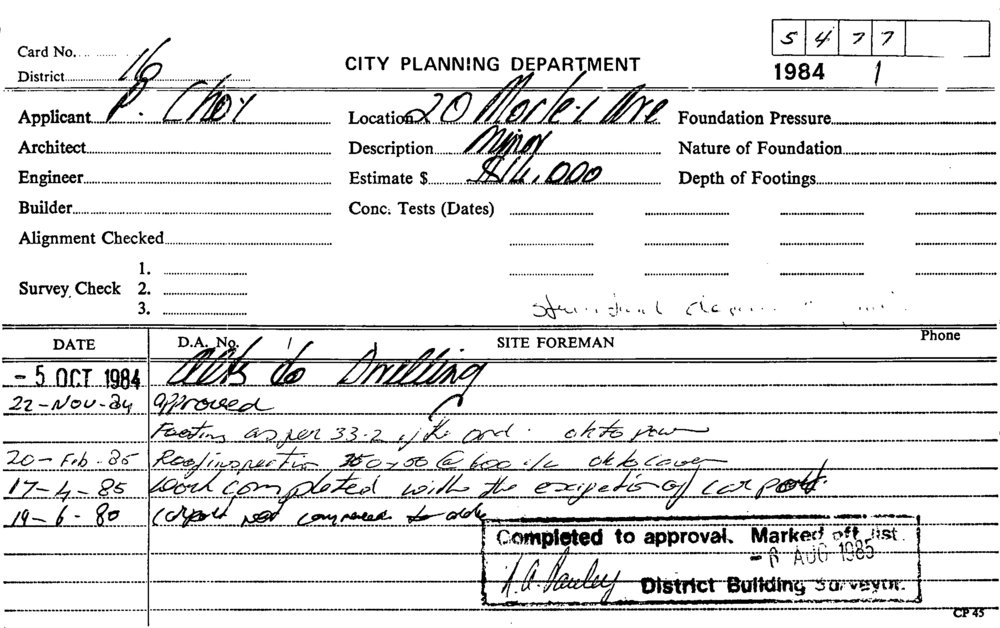 5 4 7 7
Card No. 16
CITY PLANNING DEPARTMENT
District
1984 1
Applicant P. Choy
Location 20 Morley Ave
Foundation Pressure
Architect
Description Minor
Nature of Foundation
Engineer
Estimate $ $14,000
Depth of Footings
Builder
Conc. Tests (Dates)
Alignment Checked
1.
Survey Check 2.
3.
DATE D.A. No. SITE FOREMAN Phone
- 5 OCT 1984 Alts to Dwelling
22-Nov-84 approved
Footing as per 33.2 of the ord. ok to pour
20-Feb-85 Roof inspection 50 @ 600 c/c ok to cover
17-4-85 Work completed with the exception of carport.
19-6-80 carport not commenced to date
Completed to approval. Marked off list.
AUG 1985
District Building Surveyor.
CP 45